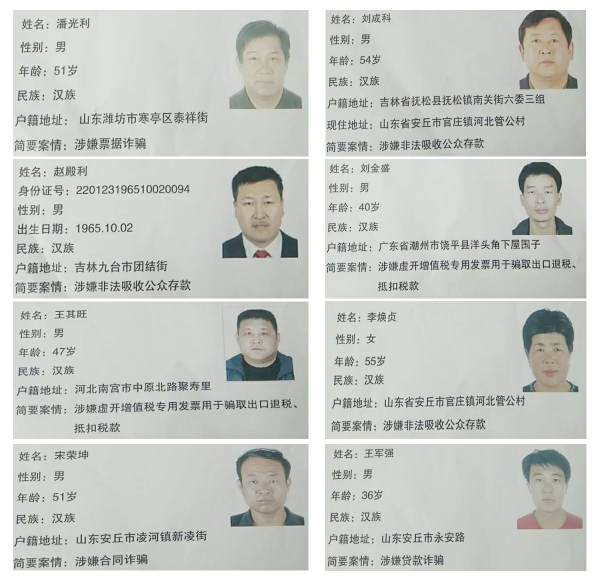 姓名：潘光利
性别：男
年龄：51岁
民族：汉族
户籍地址：山东潍坊市寒亭区泰祥街
简要案情：涉嫌票据诈骗
姓名：刘成科
性别：男
年龄：54岁
民族：汉族
户籍地址：吉林省抚松县抚松镇南关街六委三组
现住地址：山东省安丘市官庄镇河北管公村
简要案情：涉嫌非法吸收公众存款
姓名：赵殿利
身份证号：220123196510020094
性别：男
出生日期：1965.10.02
民族：汉族
户籍地址：吉林九台市团结街
简要案情：涉嫌非法吸收公众存款
姓名：刘金盛
性别：男
年龄：40岁
民族：汉族
户籍地址：广东省潮州市饶平县洋头角下屋围子
简要案情：涉嫌虚开增值税专用发票用于骗取出口退税、
抵扣税款
姓名：王其旺
性别：男
年龄：47岁
民族：汉族
户籍地址：河北南宫市中原北路聚寿里
简要案情：涉嫌虚开增值税专用发票用于骗取出口退税、
抵扣税款
姓名：李焕贞
性别：女
年龄：55岁
民族：汉族
户籍地址：山东省安丘市官庄镇河北管公村
简要案情：涉嫌非法吸收公众存款
姓名：宋荣坤
性别：男
年龄：51岁
民族：汉族
户籍地址：山东安丘市凌河镇新凌街
简要案情：涉嫌合同诈骗
姓名：王军强
性别：男
年龄：36岁
民族：汉族
户籍地址：山东安丘市永安路
简要案情：涉嫌贷款诈骗